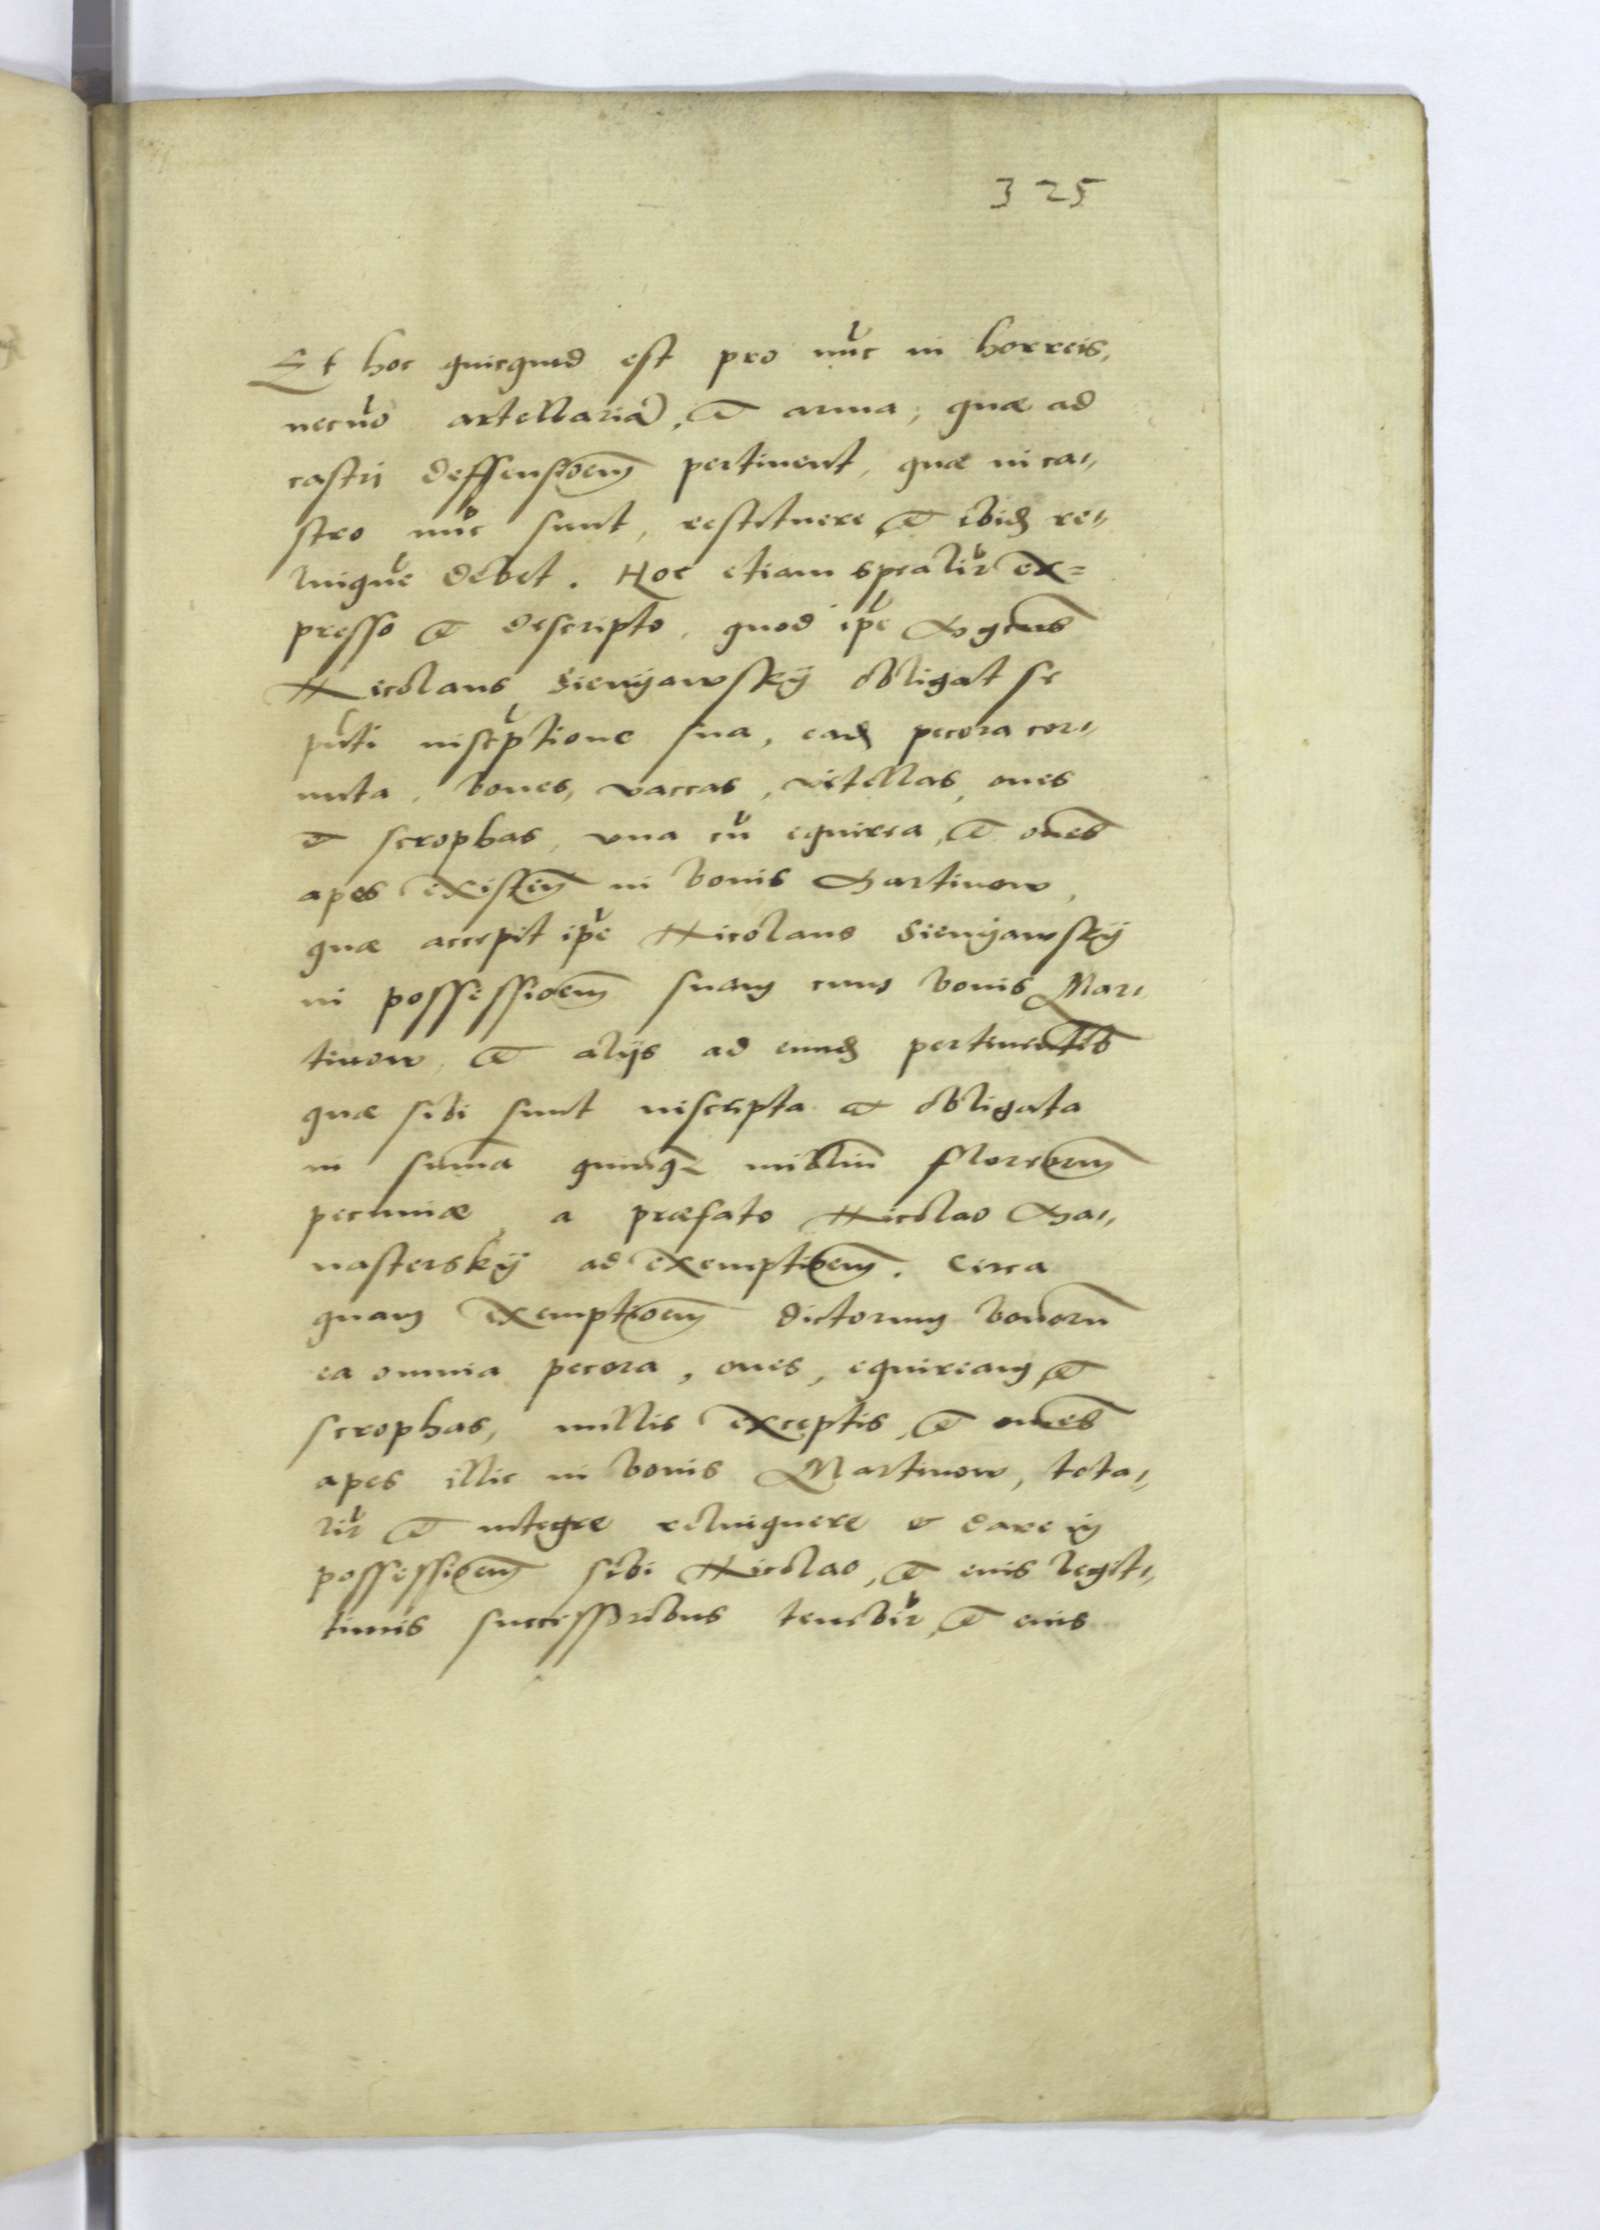 325
Et hoc quicquid est pro nūc in horreis,
necnō artellariā, et arma, quæ ad
castri deffensioem̄ pertinent, quæ in ca„
stro nūc sunt, restituere et ibidē re„
linquē debet. Hoc etiam spealir̄ ex=
presso et descripto, quod ip̄e Mgcus
Nicolaus Sienyawsky obligat se
pn̄ti inscp̄tione sua, eadē pecora cor„
nuta, boues, vaccas, vitellas, oues
et scrophas, vna cū equirea, et om̄es
apes existen̄ in bonis Martinow,
quæ accepit ip̄e Nicolaus Sienyawsky
in possessioem̄ suam cum bonis Mar„
tinow et alijs ad eundē pertinentib̄
quæ sibi sunt inscripta et obligata
in summa quinq̄ milliū florenorum
pecuniæ, a præfato Nicolao Ma„
nastersky ad exemptioem̄. Circa
quam exemptioem̄ dictorum bonorū
ea omnia pecora, oues, equiream et
scrophas, nullis exceptis, et om̄es
apes illic in bonis Martinow, tota„
lir̄ et integre relinquere et dare in
possessioem̄ sibi Nicolao, et eius legit„
timis successoribus tenebir̄, et eius